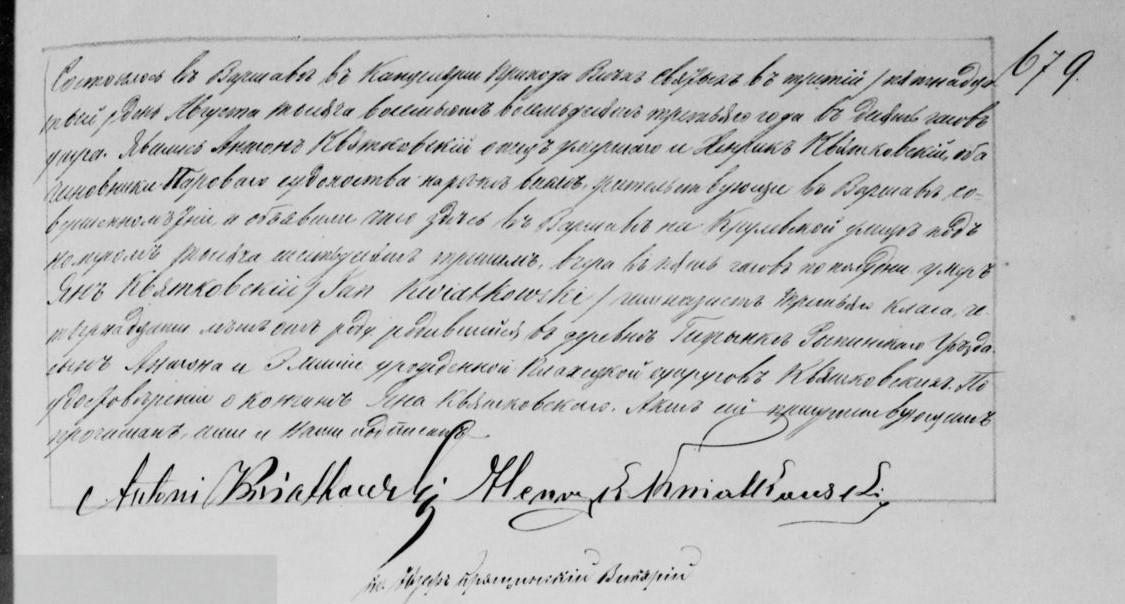 679.
Состоялось въ Варшавѣ въ Канцеляріи Прихода Всѣхъ Святыхъ въ третій / пятнадца-
тый / день Августа тысяча восемьсотъ восемьдесятъ третьяго года въ десять часовъ
утра. Явились Антонъ Квятковскій отецъ умершаго и Генрикъ Квятковскій, оба
чиновники Пароваго судоходства на рѣкѣ Вислѣ, жительствующіе въ Варшавѣ, со-
вершеннолѣтніе, и объявили что здѣсь въ Варшавѣ на Крулевской улицѣ подъ
номеромъ тысяча шестьдесятъ третьимъ, вчера въ пять часовъ по полудни, умеръ
Янъ Квятковскій / Jan Kwiatkowski / гимназистъ третьяго класса, че-
тырнадцати лѣтъ отъ роду, родившійся въ деревнѣ Рыпинскаго Уѣзда,
сынъ Антона и Эмиліи урожденной супруговъ Квятковскихъ. По
удостовѣреніи о кончинѣ Яна Квятковскаго. Актъ сей присутствующимъ
прочитанъ, ими и Нами подписанъ
Antoni Kwiatkowski Henryk Kwiatkowski
Викарій